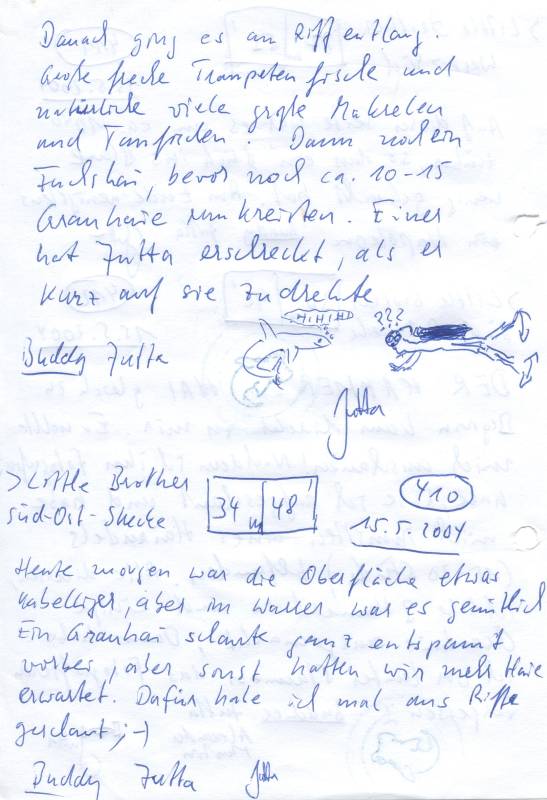 Danach ging es am Riff entlang.
Große freche Trompetenfische und
natürlich viele große Makrelen
und Tunfische. Dann noch ein
Fuchshai, bevor noch ca. 10-15
Grauhaie umkreisten. Einer
hat Jutta erschreckt, als er
kurz auf sie zudrehte
HIHIHI
???
Buddy Jutta
Jutta
> Little Brother
Süd-Ost-Strecke
34 m 48
410
15.5.2004
Heute morgen war die Oberfläche etwas
kabbeliger, aber im Wasser war es gemütlich
Ein Grauhai schaute ganz entspannt
vorbei, aber sonst hatten wir mehr Haie
erwartet. Dafür habe ich mal ans Riff
geschaut ;-)
Buddy Jutta Jutta